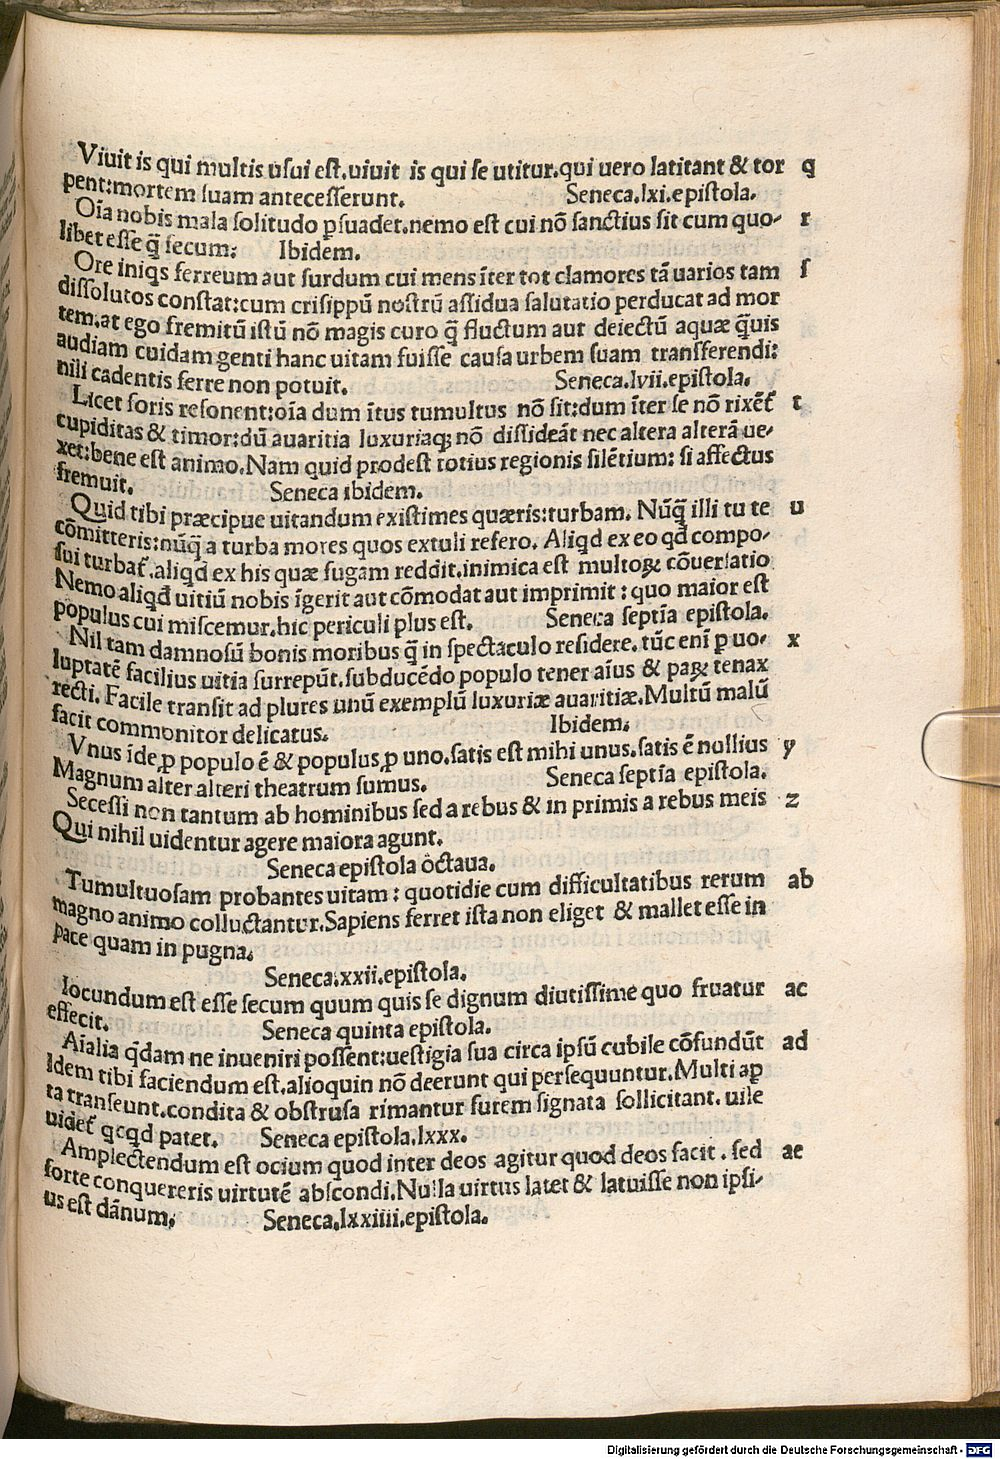 Viuit is qui multis uſui eſt.uiuit is qui ſe utitur.qui uero latitant & tor q
pent:mortem ſuam anteceſſerunt. Seneca.lxi.epiſtola.
Oīa nobis mala ſolitudo ꝑſuadet.nemo eſt cui nō ſanctius ſit cum quo- r
libet eſſe q̄ ſecum: Ibidem.
Ore iniqs ferreum aut ſurdum cui mens īter tot clamores tā uarios tam ſ
diſſolutos conſtat:cum criſippū noſtrū aſſidua ſalutatio perducat ad mor
tem.at ego fremitū iſtū nō magis curo q̄ fluctum aut deiectū aquæ q̄uis
audiam cuidam genti hanc uitam fuiſſe cauſa urbem ſuam transferendi:
nili cadentis ferre non potuit. Seneca.lvii.epiſtola.
Licet foris reſonent:oīa dum ītus tumultus nō ſit:dum īter ſe nō rixēt̄ t
cupiditas & timor:dū auaritia luxuriaqꝫ nō diſſideāt nec altera alterā ue-
xet:bene eſt animo.Nam quid prodeſt totius regionis ſilētium: ſi affectus
fremuit. Seneca ibidem.
Quid tibi præcipue uitandum exiſtimes quæris:turbam. Nūq̄ illi tu te u
cōmitteris:nūq̄ a turba mores quos extuli refero. Aliqd ex eo qd̄ compo-
ſui turbat̄.aliqd ex his quæ fugam reddit.inimica eſt multoꝝ cōuerſatio
Nemo aliqd uitiū nobis īgerit aut cōmodat aut imprimit : quo maior eſt
populus cui miſcemur.hic periculi plus eſt. Seneca ſeptīa epiſtola.
Nil tam damnoſū bonis moribus q̄ in ſpectaculo reſidere. tūc enī ꝑ uo- x
luptatē facilius uitia ſurrepūt.ſubducēdo populo tener aīus & paꝝ tenax
recti. Facile tranſit ad plures unū exemplū luxuriæ auaritiæ.Multū malū
facit commonitor delicatus. Ibidem.
Vnus īde ꝓ populo ē & populus ꝓ uno.ſatis eſt mihi unus.ſatis ē nullius y
Magnum alter alteri theatrum ſumus. Seneca ſeptīa epiſtola.
Seceſſi non tantum ab hominibus ſed a rebus & in primis a rebus meis z
Qui nihil uidentur agere maiora agunt.
Seneca epiſtola octaua.
Tumultuoſam probantes uitam : quotidie cum difficultatibus rerum ab
magno animo colluctantur.Sapiens ferret iſta non eliget & mallet eſſe in
pace quam in pugna.
Seneca.xxii.epiſtola.
Iocundum eſt eſſe ſecum quum quis ſe dignum diutiſſime quo fruatur ac
effecit. Seneca quinta epiſtola.
Aīalia qdam ne inueniri poſſent:ueſtigia ſua circa ipſū cubile cōfundūt ad
Idem tibi faciendum eſt.alioquin nō deerunt qui perſequuntur.Multi aꝑ
ta tranſeunt.condita & obſtruſa rimantur furem ſignata ſollicitant. uile
uidet̄ qcqd patet. Seneca epiſtola.lxxx.
Amplectendum eſt ocium quod inter deos agitur quod deos facit . ſed ae
forte conquereris uirtutē abſcondi.Nulla uirtus latet & latuiſſe non ipſi-
us eſt dānum. Seneca.lxxiiii.epiſtola.
Digitalisierung gefördert durch die Deutsche Forschungsgemeinschaft - DFG